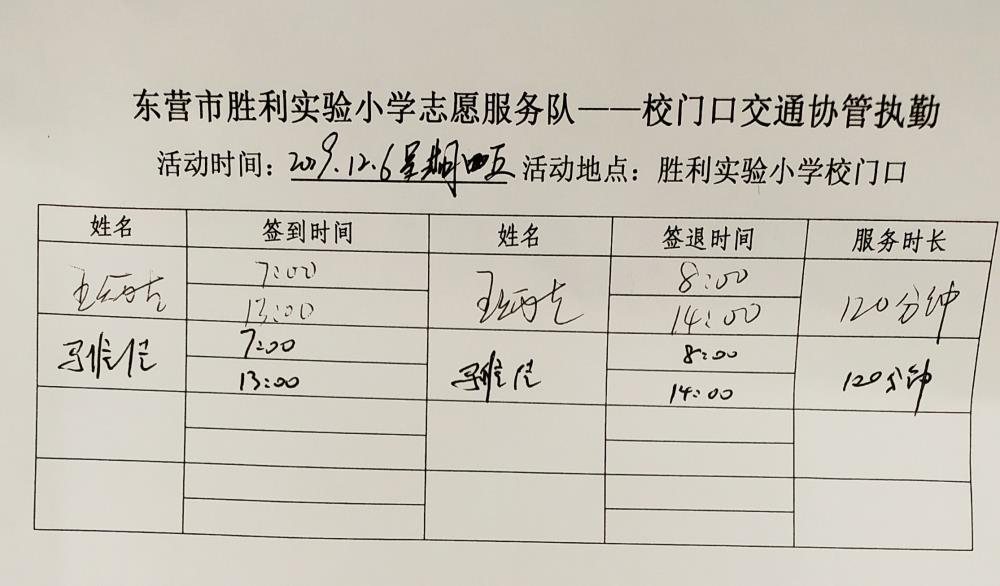 东营市胜利实验小学志愿服务队——校门口交通协管执勤
活动时间：2019.12.6星期五 活动地点：胜利实验小学校门口
姓名 签到时间 姓名 签退时间 服务时长
7:00 8:00
13:00 14:00 120分钟
7:00 8:00
13:00 14:00 120分钟